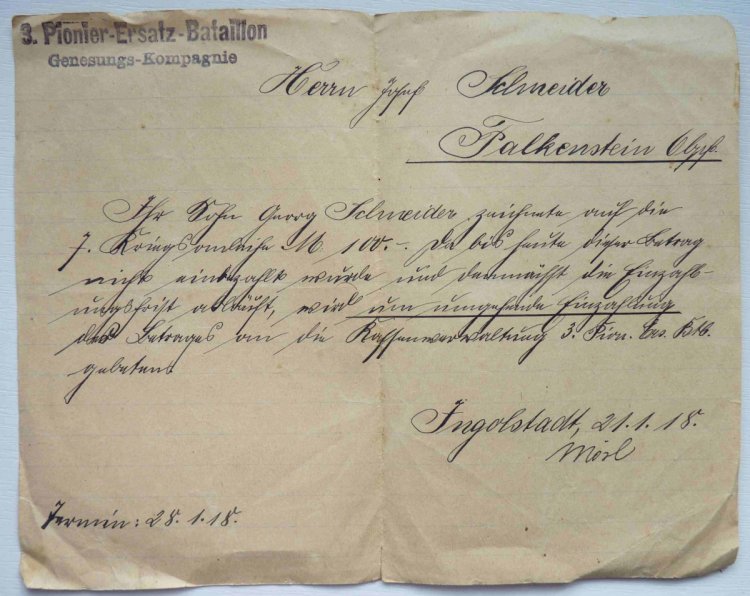 3. Pionier-Ersatz-Bataillon
Genesungs-Kompagnie
Herrn Josef Schneider
Falkenstein Obpf.
Ihr Sohn Georg Schneider zeichnete auf die
7. Kriegsanleihe M 100.- Da bis heute dieser Betrag
nicht einbezahlt wurde und demnächst die Einzahl-
ungsfrist abläuft, wird um umgehende Einzahlung
des Betrages an die Kassenverwaltung 3. Pion. Ers. Batl.
gebeten.
Ingolstadt, 21.1.18.
Mörl
Termin: 28.1.18.